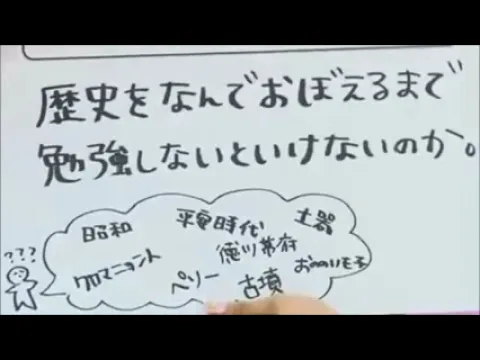 歴史をなんでおぼえるまで
勉強しないといけないのか。
昭和
平安時代
土器
???
徳川幕府
クロマニョント
ペリー
古墳
おののいも子